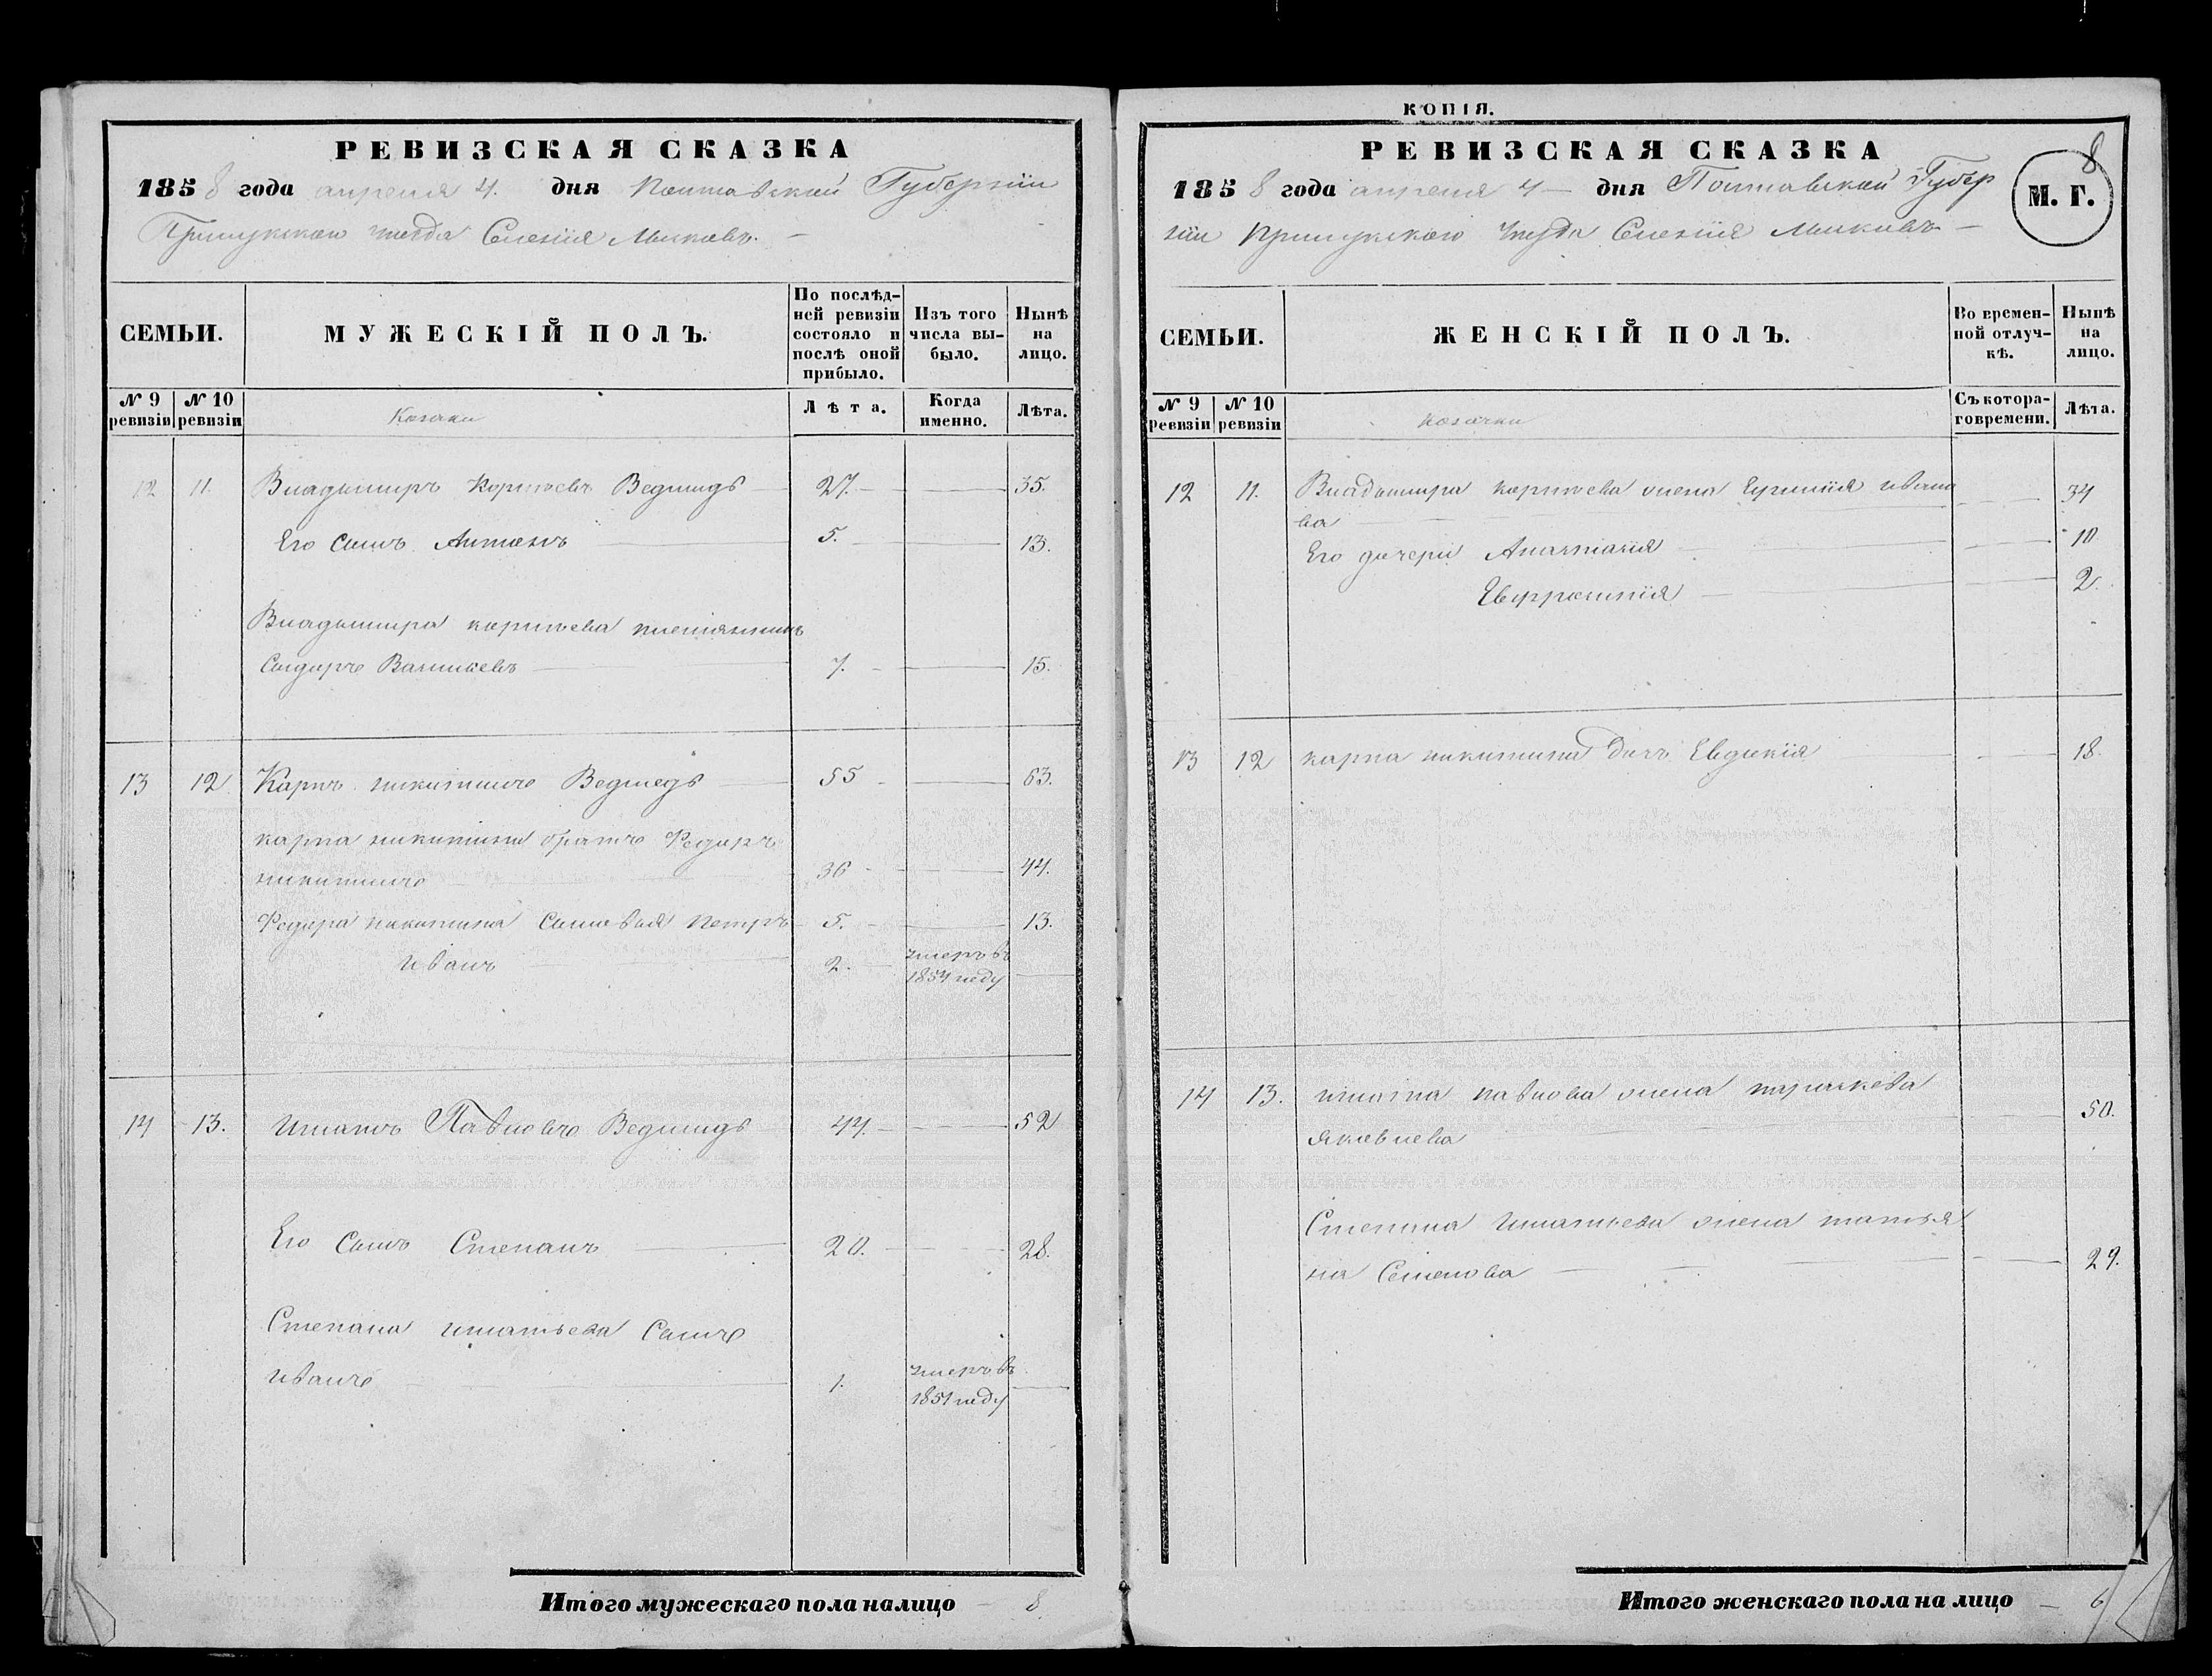 РЕВИЗСКАЯ СКАЗКА
1858 года апреля 4. дня Полтавской Губернии
Прилукского уезда Селенія Мылковъ.
СЕМЬИ.
МУЖЕСКІЙ ПОЛЪ.
По послѣд-
ней ревизіи
состояло и
послѣ оной
прибыло.
Изъ того
числа вы-
было.
Нынѣ
на
лицо.
№ 9
ревизіи
№ 10
ревизіи
Козаки
Лѣта.
Когда
именно.
Лѣта.
12 11. Владымиръ Корнѣевъ Ведмидь 27. 35.
Его Сынъ Антонъ 5. 13.
Владымира корнѣева племянникъ
Сыдоръ Василиевъ 7. 15.
13 12 Карпъ никитинъ Ведмедь 55 63.
карпа никитина братъ Федоръ
никитинъ 36 44.
Федора никитина Сыновья петръ 5. 13.
иванъ 2. умеръ въ
1854 году
14 13. Игнатъ Павловъ Ведмидь 44. 52
Его Сынъ Степанъ 20. 28.
Степана игнатьева Сынъ
иванъ 1. умеръ въ
1851 году
Итого мужескаго пола налицо 8.
КОПІЯ.
РЕВИЗСКАЯ СКАЗКА
8
М. Г.
1858 года апреля 4 дня Полтавской Губер
ніи прилукского уезда Селенія Мылковъ
СЕМЬИ.
ЖЕНСКІЙ ПОЛЪ.
Во времен-
ной отлуч-
кѣ.
Нынѣ
на
лицо.
№ 9
ревизіи
№ 10
ревизіи
козачки
Съ котора-
го времени.
Лѣта.
12 11. Владымира корнѣева жена Ефимія ивано 34
ва
Его дочери Анастасія 10
Евфросинія 2.
13 12 карпа никитина дочь Евдокія 18.
14 13. игната павлова жена параскева
яковлева 50.
Степана игнатьева жена татья
на Семенова 29.
Итого женскаго пола на лицо 6